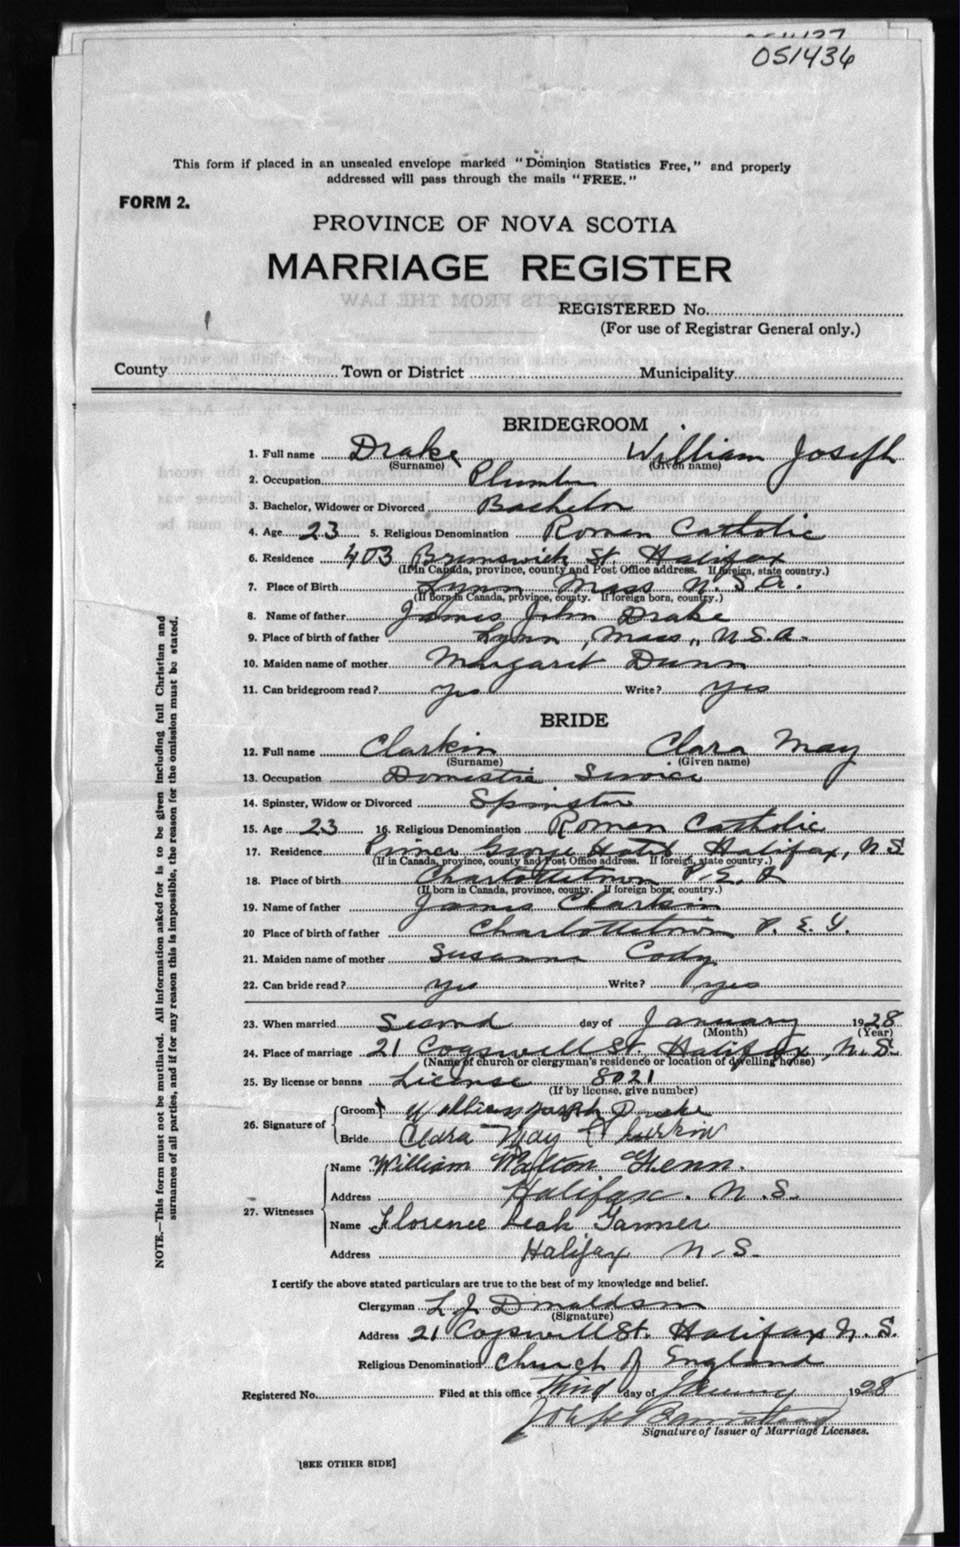 051436
This form if placed in an unsealed envelope marked "Dominion Statistics Free," and properly
addressed will pass through the mails "FREE."
FORM 2.
PROVINCE OF NOVA SCOTIA
MARRIAGE REGISTER
REGISTERED No.
(For use of Registrar General only.)
County Town or District Municipality
BRIDEGROOM
1. Full name Drake William Joseph
(Surname) (Given name)
2. Occupation Plumber
3. Bachelor, Widower or Divorced Bachelor
4. Age 23 5. Religious Denomination Roman Catholic
6. Residence 403 Brunswick St. Halifax
(If in Canada, province, county and Post Office address. If foreign, state country.)
7. Place of Birth Lynn Mass U.S.A.
(If born in Canada, province, county. If foreign born, country.)
8. Name of father James John Drake
9. Place of birth of father Lynn, Mass., U.S.A.
10. Maiden name of mother Margaret Dunn
11. Can bridegroom read? yes Write? yes
BRIDE
12. Full name Clarkin Clara May
(Surname) (Given name)
13. Occupation Domestic Service
14. Spinster, Widow or Divorced Spinster
15. Age 23 16. Religious Denomination Roman Catholic
17. Residence Prince George Hotel, Halifax, N S
(If in Canada, province, county and Post Office address. If foreign, state country.)
18. Place of birth Charlottetown P. E. I
(If born in Canada, province, county. If foreign born, country.)
19. Name of father James Clarkin
20 Place of birth of father Charlottetown P. E. I.
21. Maiden name of mother Susanna Cody
22. Can bride read? yes Write? yes
23. When married Second day of January 1928
(Month) (Year)
24. Place of marriage 21 Cogswell St. Halifax, N.S.
(Name of church or clergyman's residence or location of dwelling house)
25. By license or banns License 8021
(If by license, give number)
26. Signature of Groom William Joseph Drake
Bride Clara May Clarkin
27. Witnesses
Name William Walton Glenn.
Address Halifax. N.S.
Name Florence Leah
Address Halifax N.S.
I certify the above stated particulars are true to the best of my knowledge and belief.
Clergyman L. J. Donaldson
(Signature)
Address 21 Cogswell St. Halifax N.S.
Religious Denomination Church of England
Registered No. Filed at this office Third day of January 1928
Signature of Issuer of Marriage Licenses.
[SEE OTHER SIDE]
NOTE.—This form must not be mutilated. All information asked for is to be given including full Christian and
surnames of all parties, and if for any reason this is impossible, the reason for the omission must be stated.